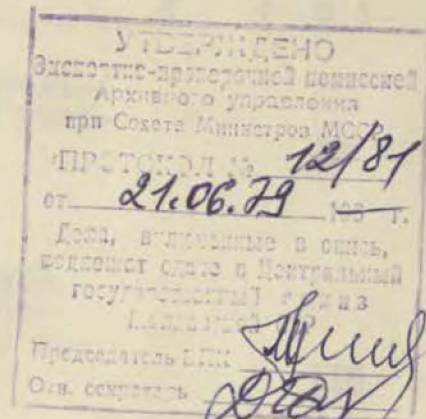 УТВЕРЖДЕНО
Экспертно-проверочной комиссией
Архивного управления
при Совете Министров МССР
ПРОТОКОЛ № 12/81
от 21.06.79 г.
Дела, включенные в опись,
подлежат сдаче в Центральный
государственный архив
Председатель ЭПК
Отв. секретарь